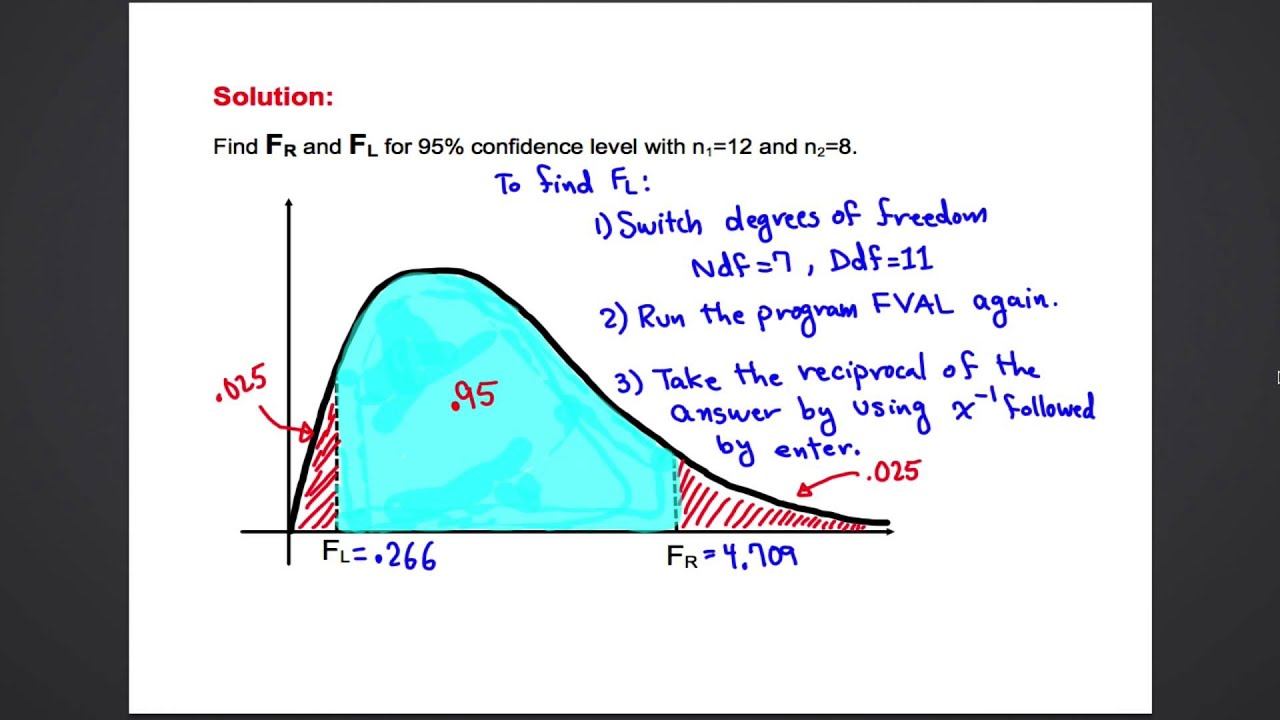 Solution:
Find FR and FL for 95% confidence level with n₁=12 and n₂=8.
To find FL:
1) Switch degrees of freedom
Ndf=7, Ddf=11
2) Run the program FVAL again.
3) Take the reciprocal of the
answer by using x⁻¹ followed
by enter.
.025
.95
.025
FL=.266
FR=4.709